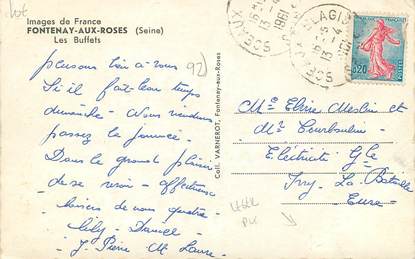 Images de France
FONTENAY-AUX-ROSES (Seine)
Les Buffets
92
pensons bien à vous
S'il fait beau temps
dimanche. Nous viendrons
passez la journée.
Dans le grand plaisir
de se voir - affectueux
baisers de nous quatre
Lily - Daniel -
J. Pierre M. Laure
Coll. VARNEROT, Fontenay-aux-Roses
SCEAUX
1961
SCEAUX
0,20
Mme Elvire Meslin et
Mr Courboulin
Electricité Gle
Ivry La Bataille
Eure